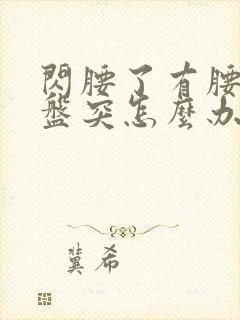 閃腰了有腰
盤突怎麼办
冀希